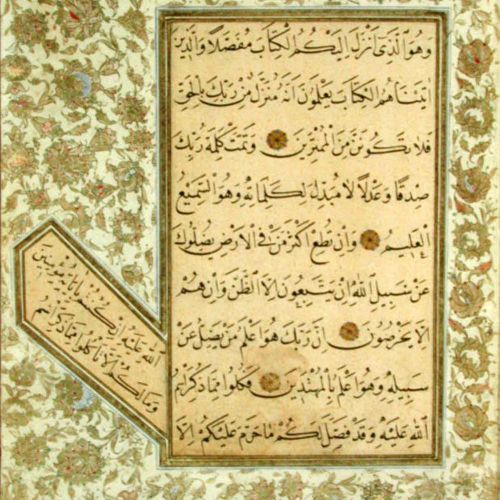 وَهُوَ الَّذِي اَنْزَلَ اِلَيْكُمُ الْكِتَابَ مُفَصَّلًا وَالَّذِينَ
اٰتَيْنَاهُمُ الْكِتَابَ يَعْلَمُونَ اَنَّهُ مُنَزَّلٌ مِنْ رَبِّكَ بِالْحَقِّ
فَلَا تَكُونَنَّ مِنَ الْمُمْتَرِينَ وَتَمَّتْ كَلِمَةُ رَبِّكَ
صِدْقًا وَعَدْلًا لَا مُبَدِّلَ لِكَلِمَاتِهِ وَهُوَ السَّمِيعُ
الْعَلِيمُ وَاِنْ تُطِعْ اَكْثَرَ مَنْ فِي الْاَرْضِ يُضِلُّوكَ
عَنْ سَبِيلِ اللّٰهِ اِنْ يَتَّبِعُونَ اِلَّا الظَّنَّ وَاِنْ هُمْ
اِلَّا يَخْرُصُونَ اِنَّ رَبَّكَ هُوَ اَعْلَمُ مَنْ يَضِلُّ عَنْ
سَبِيلِهِ وَهُوَ اَعْلَمُ بِالْمُهْتَدِينَ فَكُلُوا مِمَّا ذُكِرَ اسْمُ
اللّٰهِ عَلَيْهِ وَقَدْ فَصَّلَ لَكُمْ مَا حَرَّمَ عَلَيْكُمْ اِلَّا
اللّٰهِ عَلَيْهِ اِنْ كُنْتُمْ بِاٰيَاتِهِ مُؤْمِنِينَ
وَمَا لَكُمْ اَلَّا تَأْكُلُوا مِمَّا ذُكِرَ اسْمُ